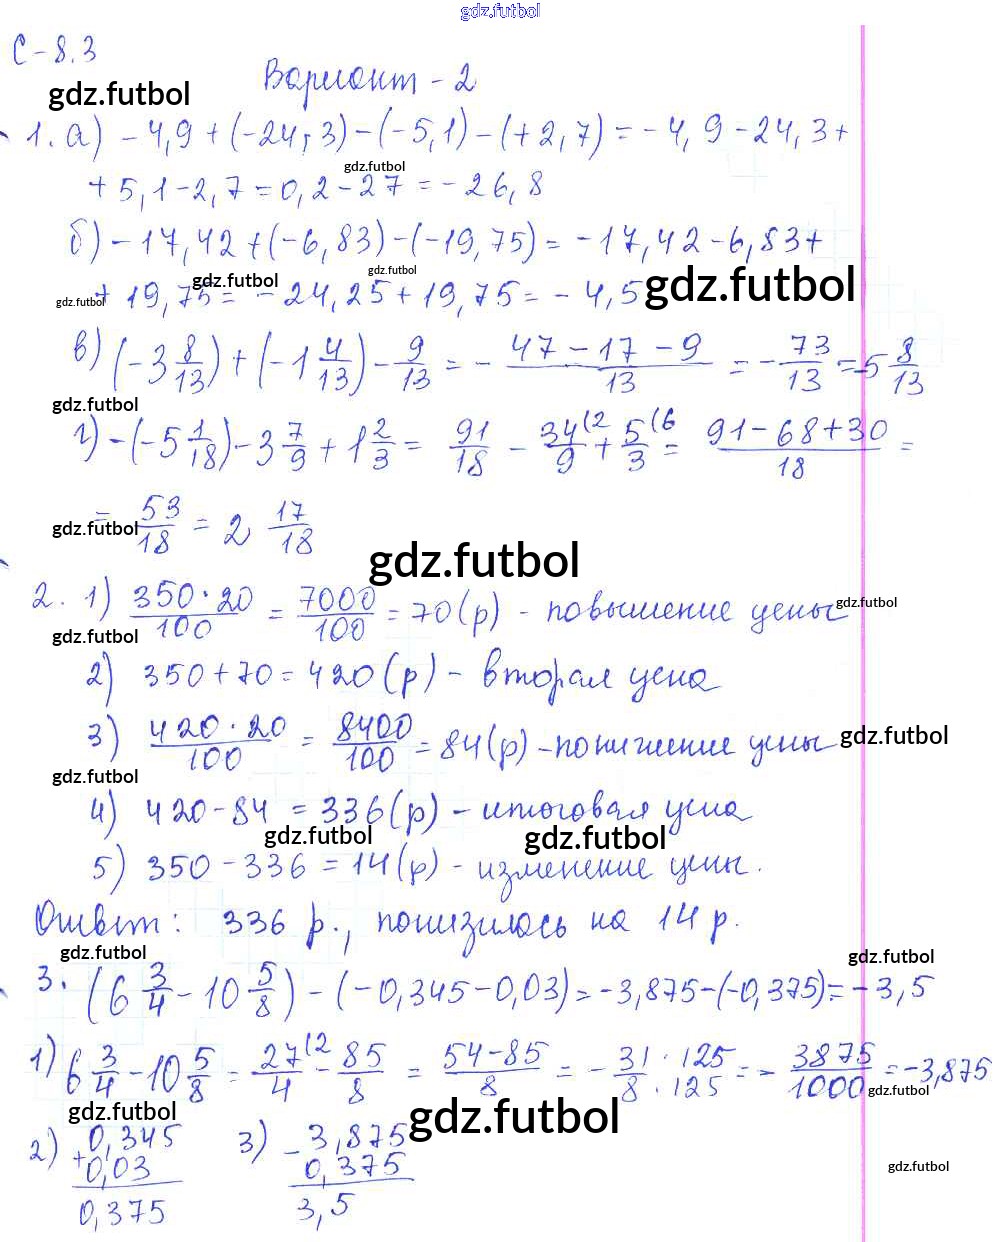 gdz.futbol
С-8.3
Вариант-2
gdz.futbol
1. а) -4,9+(-24,3)-(-5,1)-(+2,7)=-4,9-24,3+
gdz.futbol
+5,1-2,7=0,2-27=-26,8
б) -17,42+(-6,83)-(-19,75)=-17,42-6,83+
gdz.futbol gdz.futbol gdz.futbol gdz.futbol
+19,75=-24,25+19,75=-4,5
в) (-3 8/13)+(-1 4/13)-9/13=-(47-17-9)/13=-73/13=-5 8/13
gdz.futbol
г) -(-5 1/18)-3 7/9+1 2/3=91/18-34(2/9+5(6/3=(91-68+30)/18=
gdz.futbol
=53/18=2 17/18
gdz.futbol
2. 1) (350·20)/100=7000/100=70(р)-повышение цены
gdz.futbol
gdz.futbol
2) 350+70=420(р)-вторая цена
3) (420·20)/100=8400/100=84(р)-понижение цены
gdz.futbol
gdz.futbol
4) 420-84=336(р)-итоговая цена
gdz.futbol gdz.futbol
5) 350-336=14(р)-изменение цены.
Ответ: 336 р., понизилась на 14 р.
gdz.futbol gdz.futbol
3. (6 3/4-10 5/8)-(-0,345-0,03)=-3,875-(-0,375)=-3,5
1) 6 3/4-10 5/8=27(2/4-85/8=(54-85)/8=-31·125/8·125=-3875/1000=-3,875
gdz.futbol
gdz.futbol gdz.futbol
2) +0,345
0,03
0,375
3) -3,875
0,375
3,5
gdz.futbol